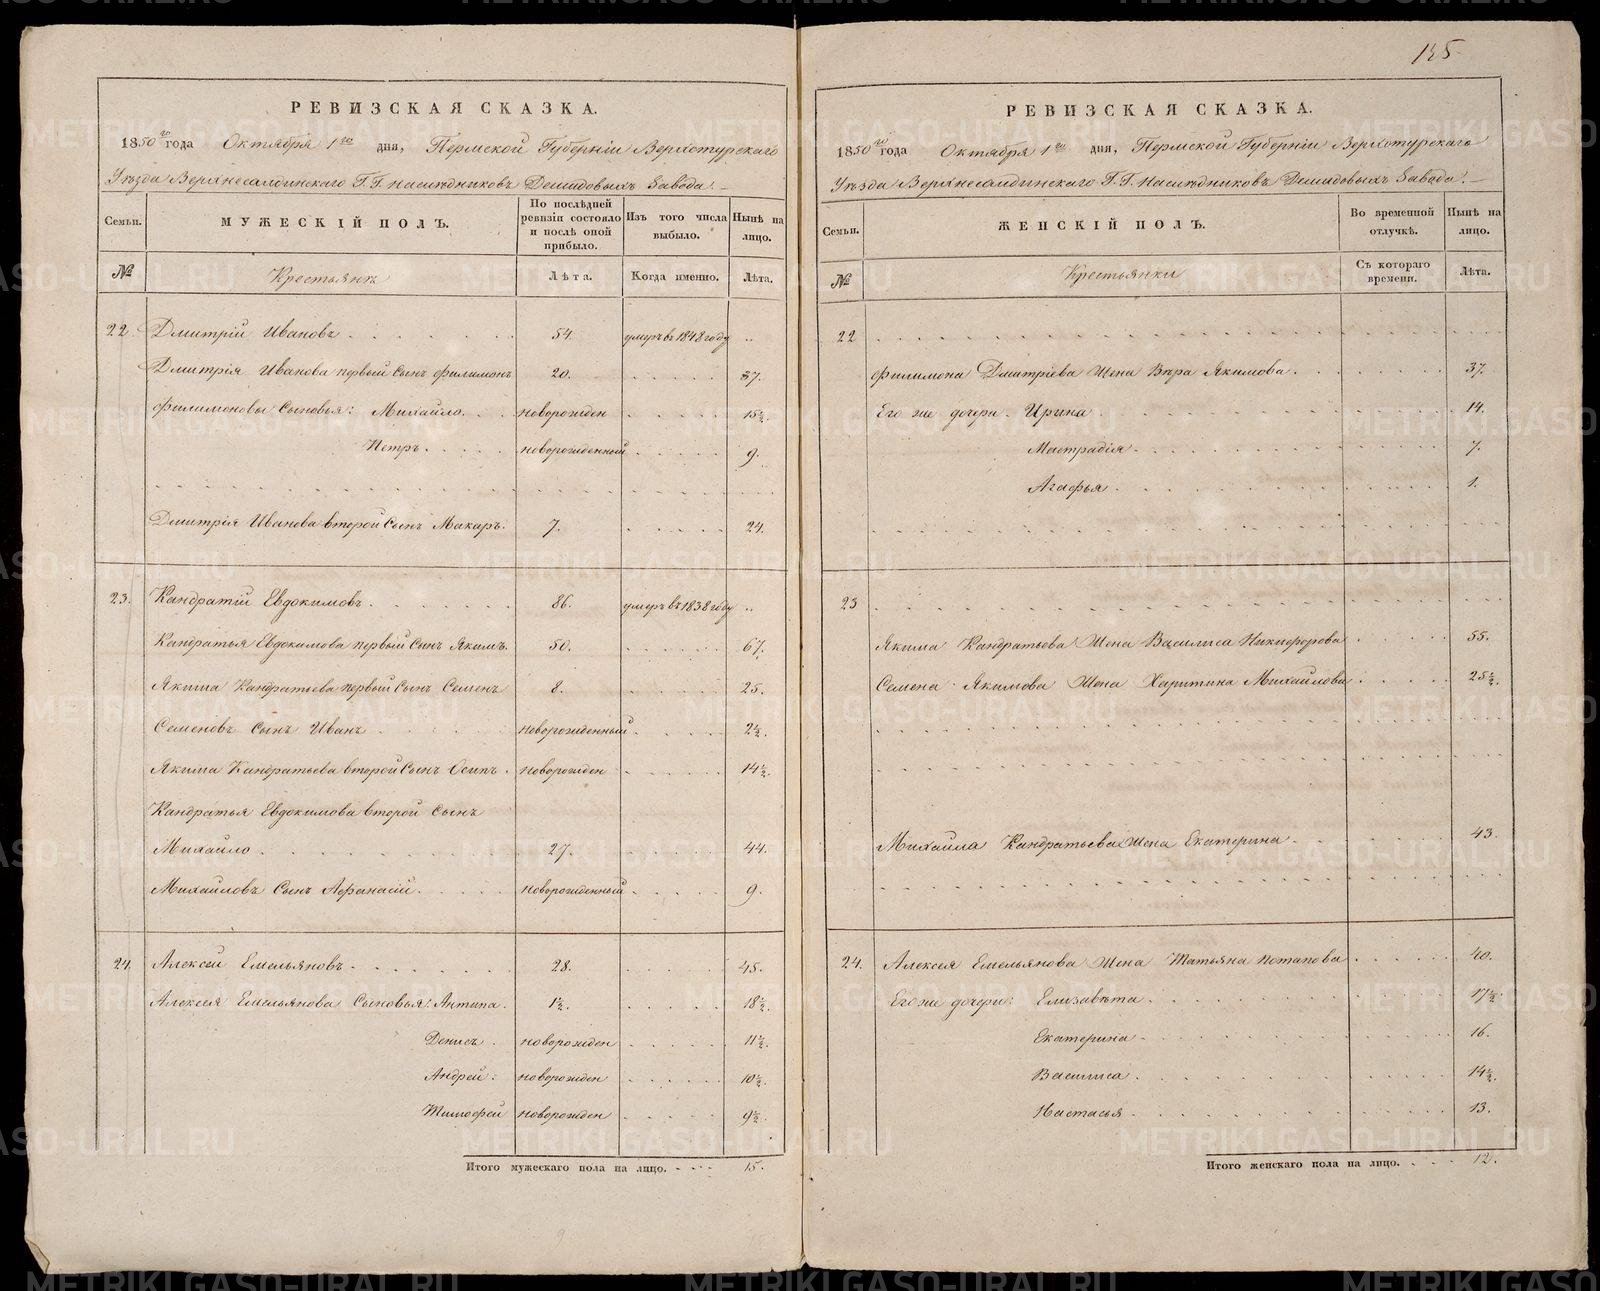 145
РЕВИЗСКАЯ СКАЗКА.
1850го года Октября 1го дня, Пермской Губернiи Верхотурскаго
Уѣзда Верхнесалдинскаго Г.Г. наслѣдниковъ Демидовыхъ Завода.
Семьи. МУЖЕСКIЙ ПОЛЪ. По послѣдней ревизiи состояло и послѣ оной прибыло. Изъ того числа выбыло. Нынѣ на лицо.
№ Крестьянъ Лѣта. Когда именно. Лѣта.
22. Дмитрiй Ивановъ 54. умеръ въ 1848 году
Дмитрiя Иванова первый сынъ Филимонъ 20. 37.
Филимоновы сыновья: Михайло новорожден 15½.
Петръ новорожденный 9.
Дмитрiя Иванова второй сынъ Макаръ. 7. 24.
23. Кандратiй Евдокимовъ 86. умеръ въ 1838 году
Кандратья Евдокимова первый сынъ Якимъ. 50. 67.
Якима Кандратьева первый сынъ Семенъ 8. 25.
Семеновъ сынъ Иванъ новорожденный 2½.
Якима Кандратьева второй сынъ Осипъ новорожден 14½.
Кандратья Евдокимова второй сынъ
Михайло 27. 44.
Михайловъ сынъ Афанасiй новорожденный 9.
24. Алексей Емельяновъ 28. 45.
Алексея Емельянова сыновья: Антипа. 1½. 18½.
Денисъ новорожден 11½.
Андрей: новорожден 10½.
Тимофей новорожден 9½.
Итого мужескаго пола на лицо. 15.
РЕВИЗСКАЯ СКАЗКА.
1850го года Октября 1го дня, Пермской Губернiи Верхотурскаго
Уѣзда Верхнесалдинскаго Г.Г. наслѣдниковъ Демидовыхъ Завода.
Семьи. ЖЕНСКIЙ ПОЛЪ. Во временной отлучкѣ. Нынѣ на лицо.
№ Крестьянки Съ котораго времени. Лѣта.
22
Филимона Дмитрiева жена Вѣра Якимова. 37.
Его же дочери. Ирина 14.
Мастрадiя 7.
Агафья 1.
23
Якима Кандратьева жена Василиса Никифорова 55.
Семена Якимова жена Харитина Михайлова 25½.
Михайла Кандратьева жена Екатерина 43.
24. Алексея Емельянова жена Татьяна Потапова 40.
Его же дочери: Елизавѣта 17½.
Екатерина 16.
Василиса 14½.
Настасья 13.
Итого женскаго пола на лицо. 12.
METRIKI.GASO-URAL.RU